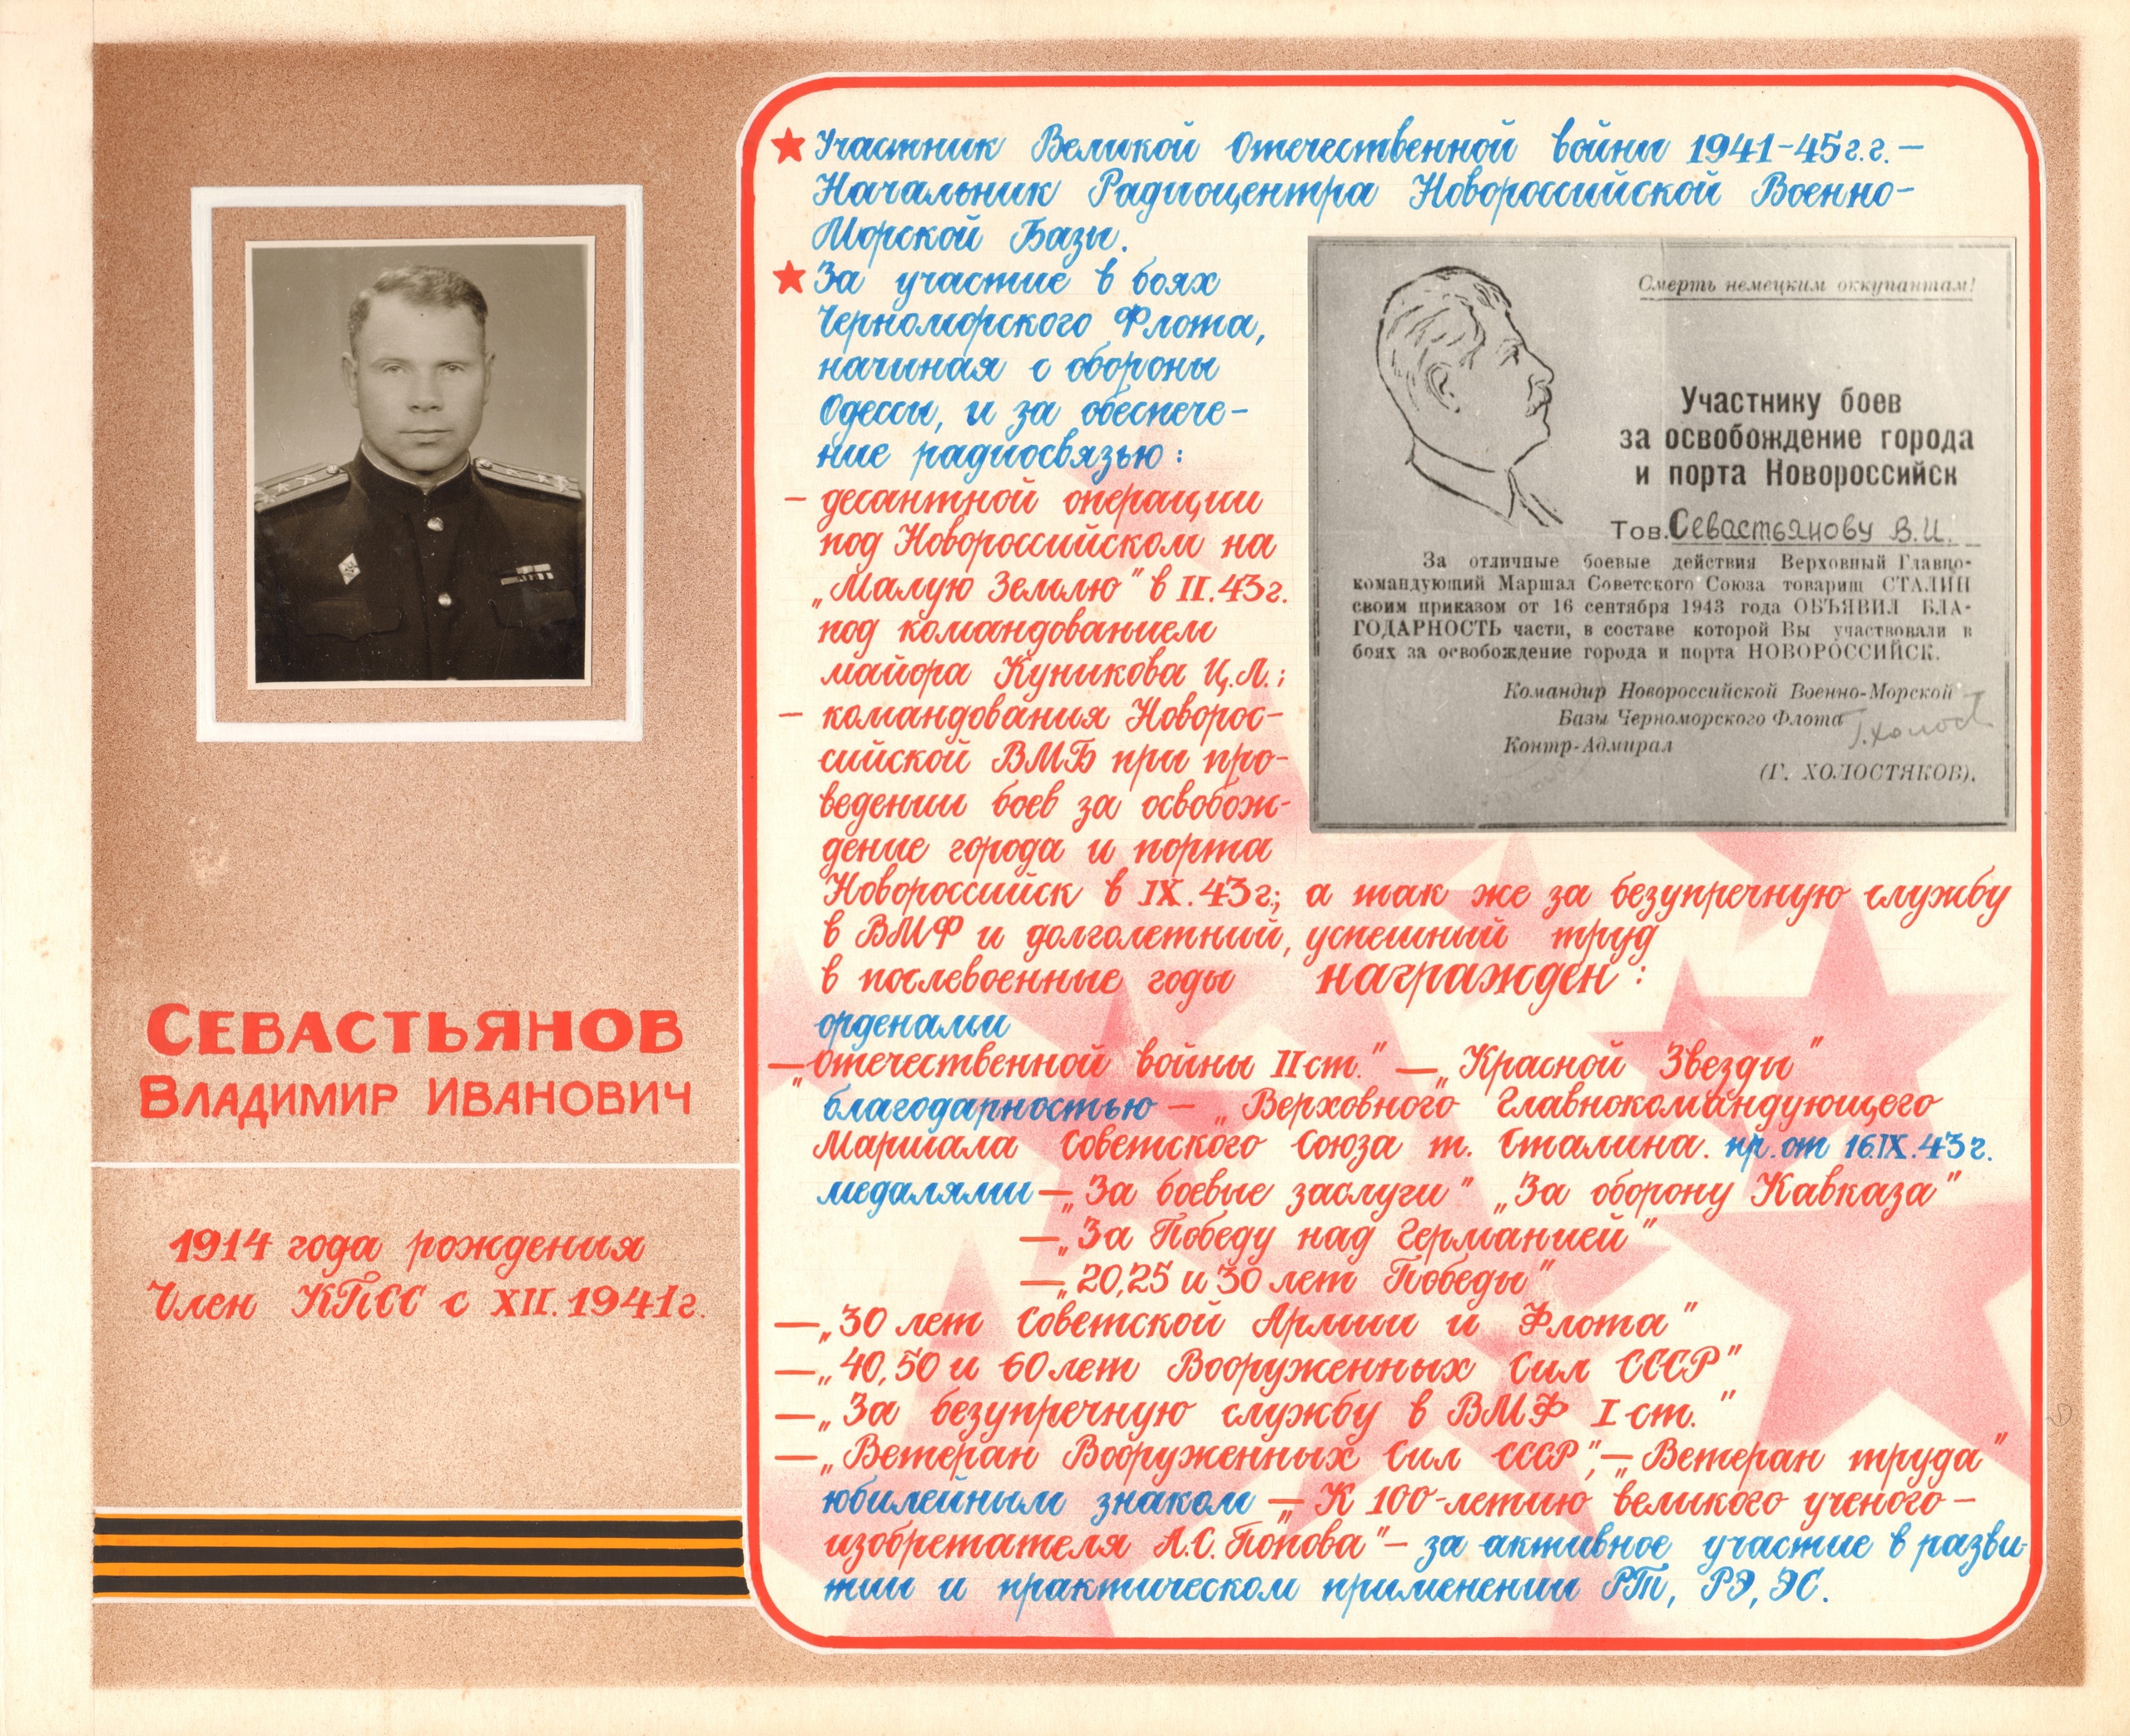 СЕВАСТЬЯНОВ
ВЛАДИМИР ИВАНОВИЧ
1914 года рождения
Член КПСС с XII.1941г.
Участник Великой Отечественной войны 1941-45г.г.–
Начальник Радиоцентра Новороссийской Военно-
Морской Базы.
За участие в боях
Черноморского Флота,
начиная с обороны
Одессы, и за обеспече-
ние радиосвязью:
– десантной операции
под Новороссийском на
„Малую Землю" в II.43г.
под командованием
майора Куникова Ц.Л.;
– командования Новорос-
сийской ВМБ при про-
ведении боев за освобож-
дение города и порта
Новороссийск в IX.43г; а так же за безупречную службу
в ВМФ и долголетний, успешный труд
в послевоенные годы награжден:
орденами
– „Отечественной войны II ст." – „Красной Звезды"
благодарностью – „Верховного Главнокомандующего
Маршала Советского Союза т. Сталина. пр. от 16.IX.43г.
медалями – „За боевые заслуги" „За оборону Кавказа"
– „За Победу над Германией"
– „20,25 и 30 лет Победы"
– „30 лет Советской Армии и Флота"
– „40,50 и 60 лет Вооруженных Сил СССР"
– „За безупречную службу в ВМФ I ст."
– „Ветеран Вооруженных Сил СССР", – „Ветеран труда"
юбилейным знаком – „К 100-летию великого ученого –
изобретателя А.С.Попова" – за активное участие в разви-
тии и практическом применении РТ, РЭ, ЭС.
Смерть немецким оккупантам!
Участнику боев
за освобождение города
и порта Новороссийск
Тов. Севастьянову В.И.
За отличные боевые действия Верховный Главно-
командующий Маршал Советского Союза товарищ СТАЛИН
своим приказом от 16 сентября 1943 года ОБЪЯВИЛ БЛА-
ГОДАРНОСТЬ части, в составе которой Вы участвовали в
боях за освобождение города и порта НОВОРОССИЙСК.
Командир Новороссийской Военно-Морской
Базы Черноморского Флота
Контр-Адмирал
(Г. ХОЛОСТЯКОВ).